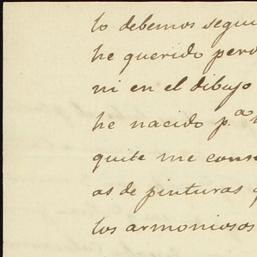 lo debemos segui
he querido perd
ni en el dibujo
he nacido p.ª
quite me cons
as de pinturas
los armoniosos